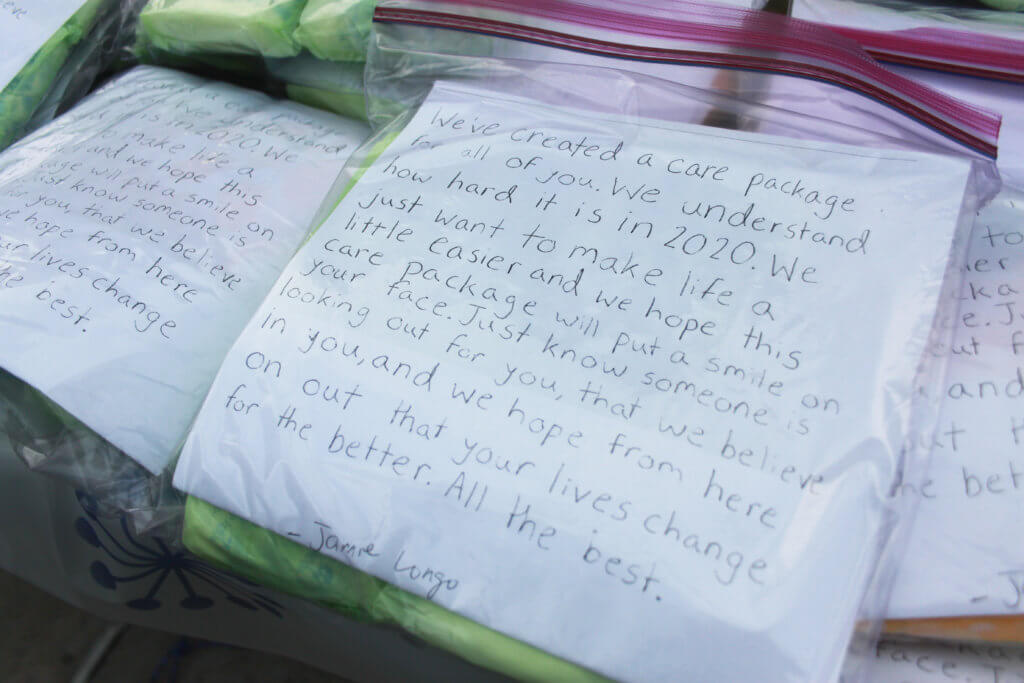 We understand
is in 2020. We
to make life a
and we hope this
will put a smile on
just know someone is
for you, that we believe
we hope from here
lives change
the best.
We've created a care package
for all of you. We understand
how hard it is in 2020. We
just want to make life a
little easier and we hope this
care package will put a smile on
your face. Just know someone is
looking out for you, that we believe
in you, and we hope from here
on out that your lives change
for the better. All the best.
- Jamie Longo
to
and
face.